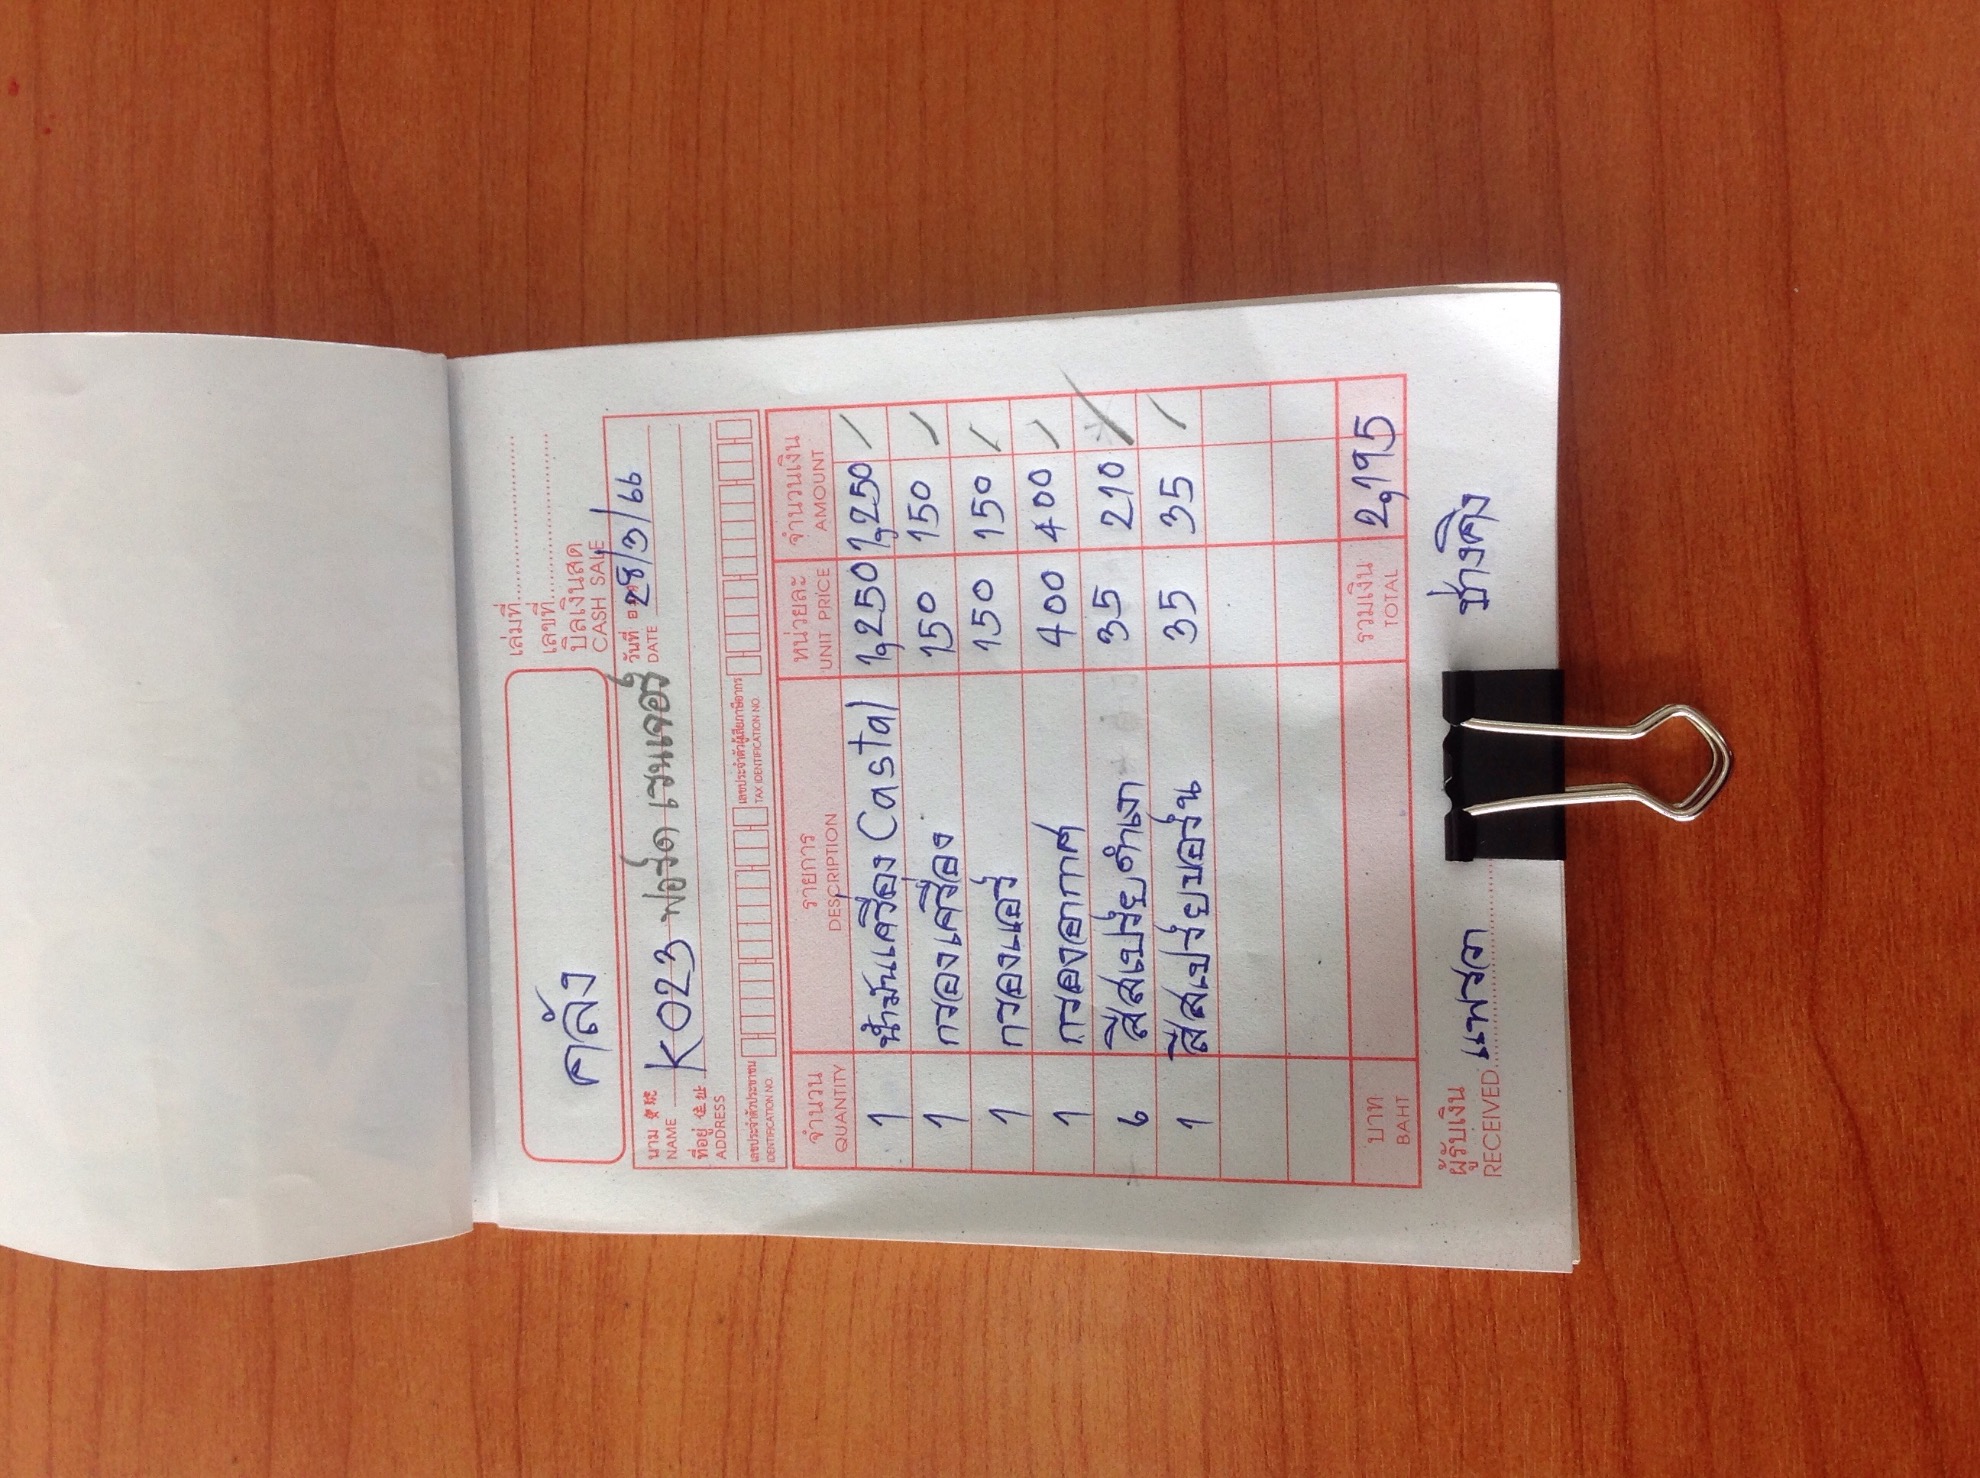 เล่มที่
เลขที่
บิลเงินสด
CASH SALE
คลัง
นาม
NAME K023 ฟอร์ด เรนเจอร์ วันที่
DATE 28/3/66
ที่อยู่ 住址
ADDRESS
เลขประจำตัวประชาชน เลขประจำตัวผู้เสียภาษีอากร
IDENTIFICATION NO. TAX IDENTIFICATION NO.
จำนวน รายการ หน่วยละ จำนวนเงิน
QUANTITY DESCRIPTION UNIT PRICE AMOUNT
1 น้ำมันเครื่อง Castal 1,250 1,250
1 กรองเครื่อง 150 150
1 กรองแอร์ 150 150
1 กรองอากาศ 400 400
6 สีสเปร์ยดำเงา 35 210
1 สีสเปร์ยบอร์น 35 35
บาท รวมเงิน 2,195
BAHT TOTAL
ผู้รับเงิน
RECEIVED แพรวา ช่างคิง